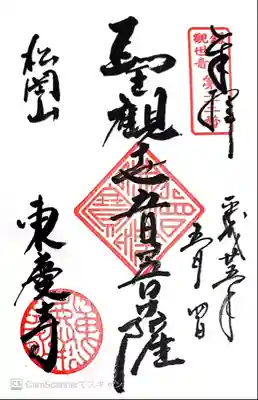 奉拝
觀世音
平成廿五年
五月四日
聖觀世音菩薩
松岡山
東慶寺
CS CamScannerでスキャン